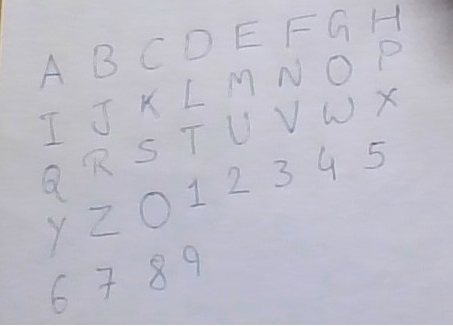 A B C D E F G H
I J K L M N O P
Q R S T U V W X
Y Z 0 1 2 3 4 5
6 7 8 9